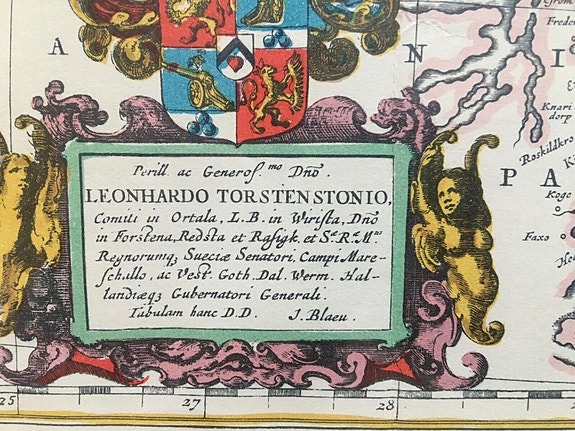 A
N
I
PA
Perill. ac Generoſ.mo Dno.
LEONHARDO TORSTENSTONIO,
Comiti in Ortala, L.B. in Wirista, Dno
in Forstena, Redsta et Rasigk. et S.æ R.æ M.tis
Regnorumq; Sueciæ Senatori, Campi Mare-
schallo, ac Vest. Goth. Dal. Werm. Hal-
landiæq; Gubernatori Generali.
Tabulam hanc D.D. J. Blaeu.
Knar
dorp
Roskildkro
Koge
Faxo
25
27
28